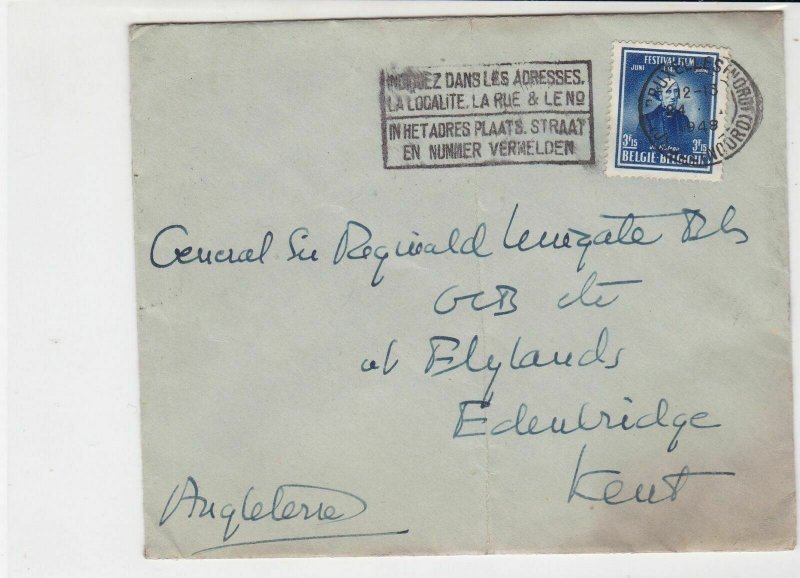 INDIQUEZ DANS LES ADRESSES.
LA LOCALITE. LA RUE & LE NO
IN HET ADRES PLAATS. STRAAT
EN NUMMER VERMELDEN
FESTIVAL FILM
JUNI JUIN
3F15 3F15
BELGIE-BELGIQUE
12-15
1948
General Sir Reginald
GCB etc
at Elylands
Edenbridge
Kent
Angleterre